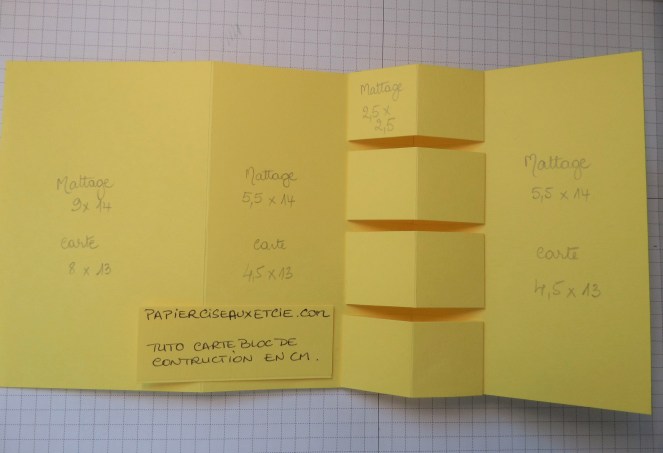 Mattage
9 x 14
Carte
8 x 13
Mattage
5,5 x 14
Carte
4,5 x 13
Mattage
2,5 x
2,5
Mattage
5,5 x 14
Carte
4,5 x 13
PAPIERCISEAUXETCIE.COM
TUTO CARTE BLOC DE
CONTRUCTION EN CM.